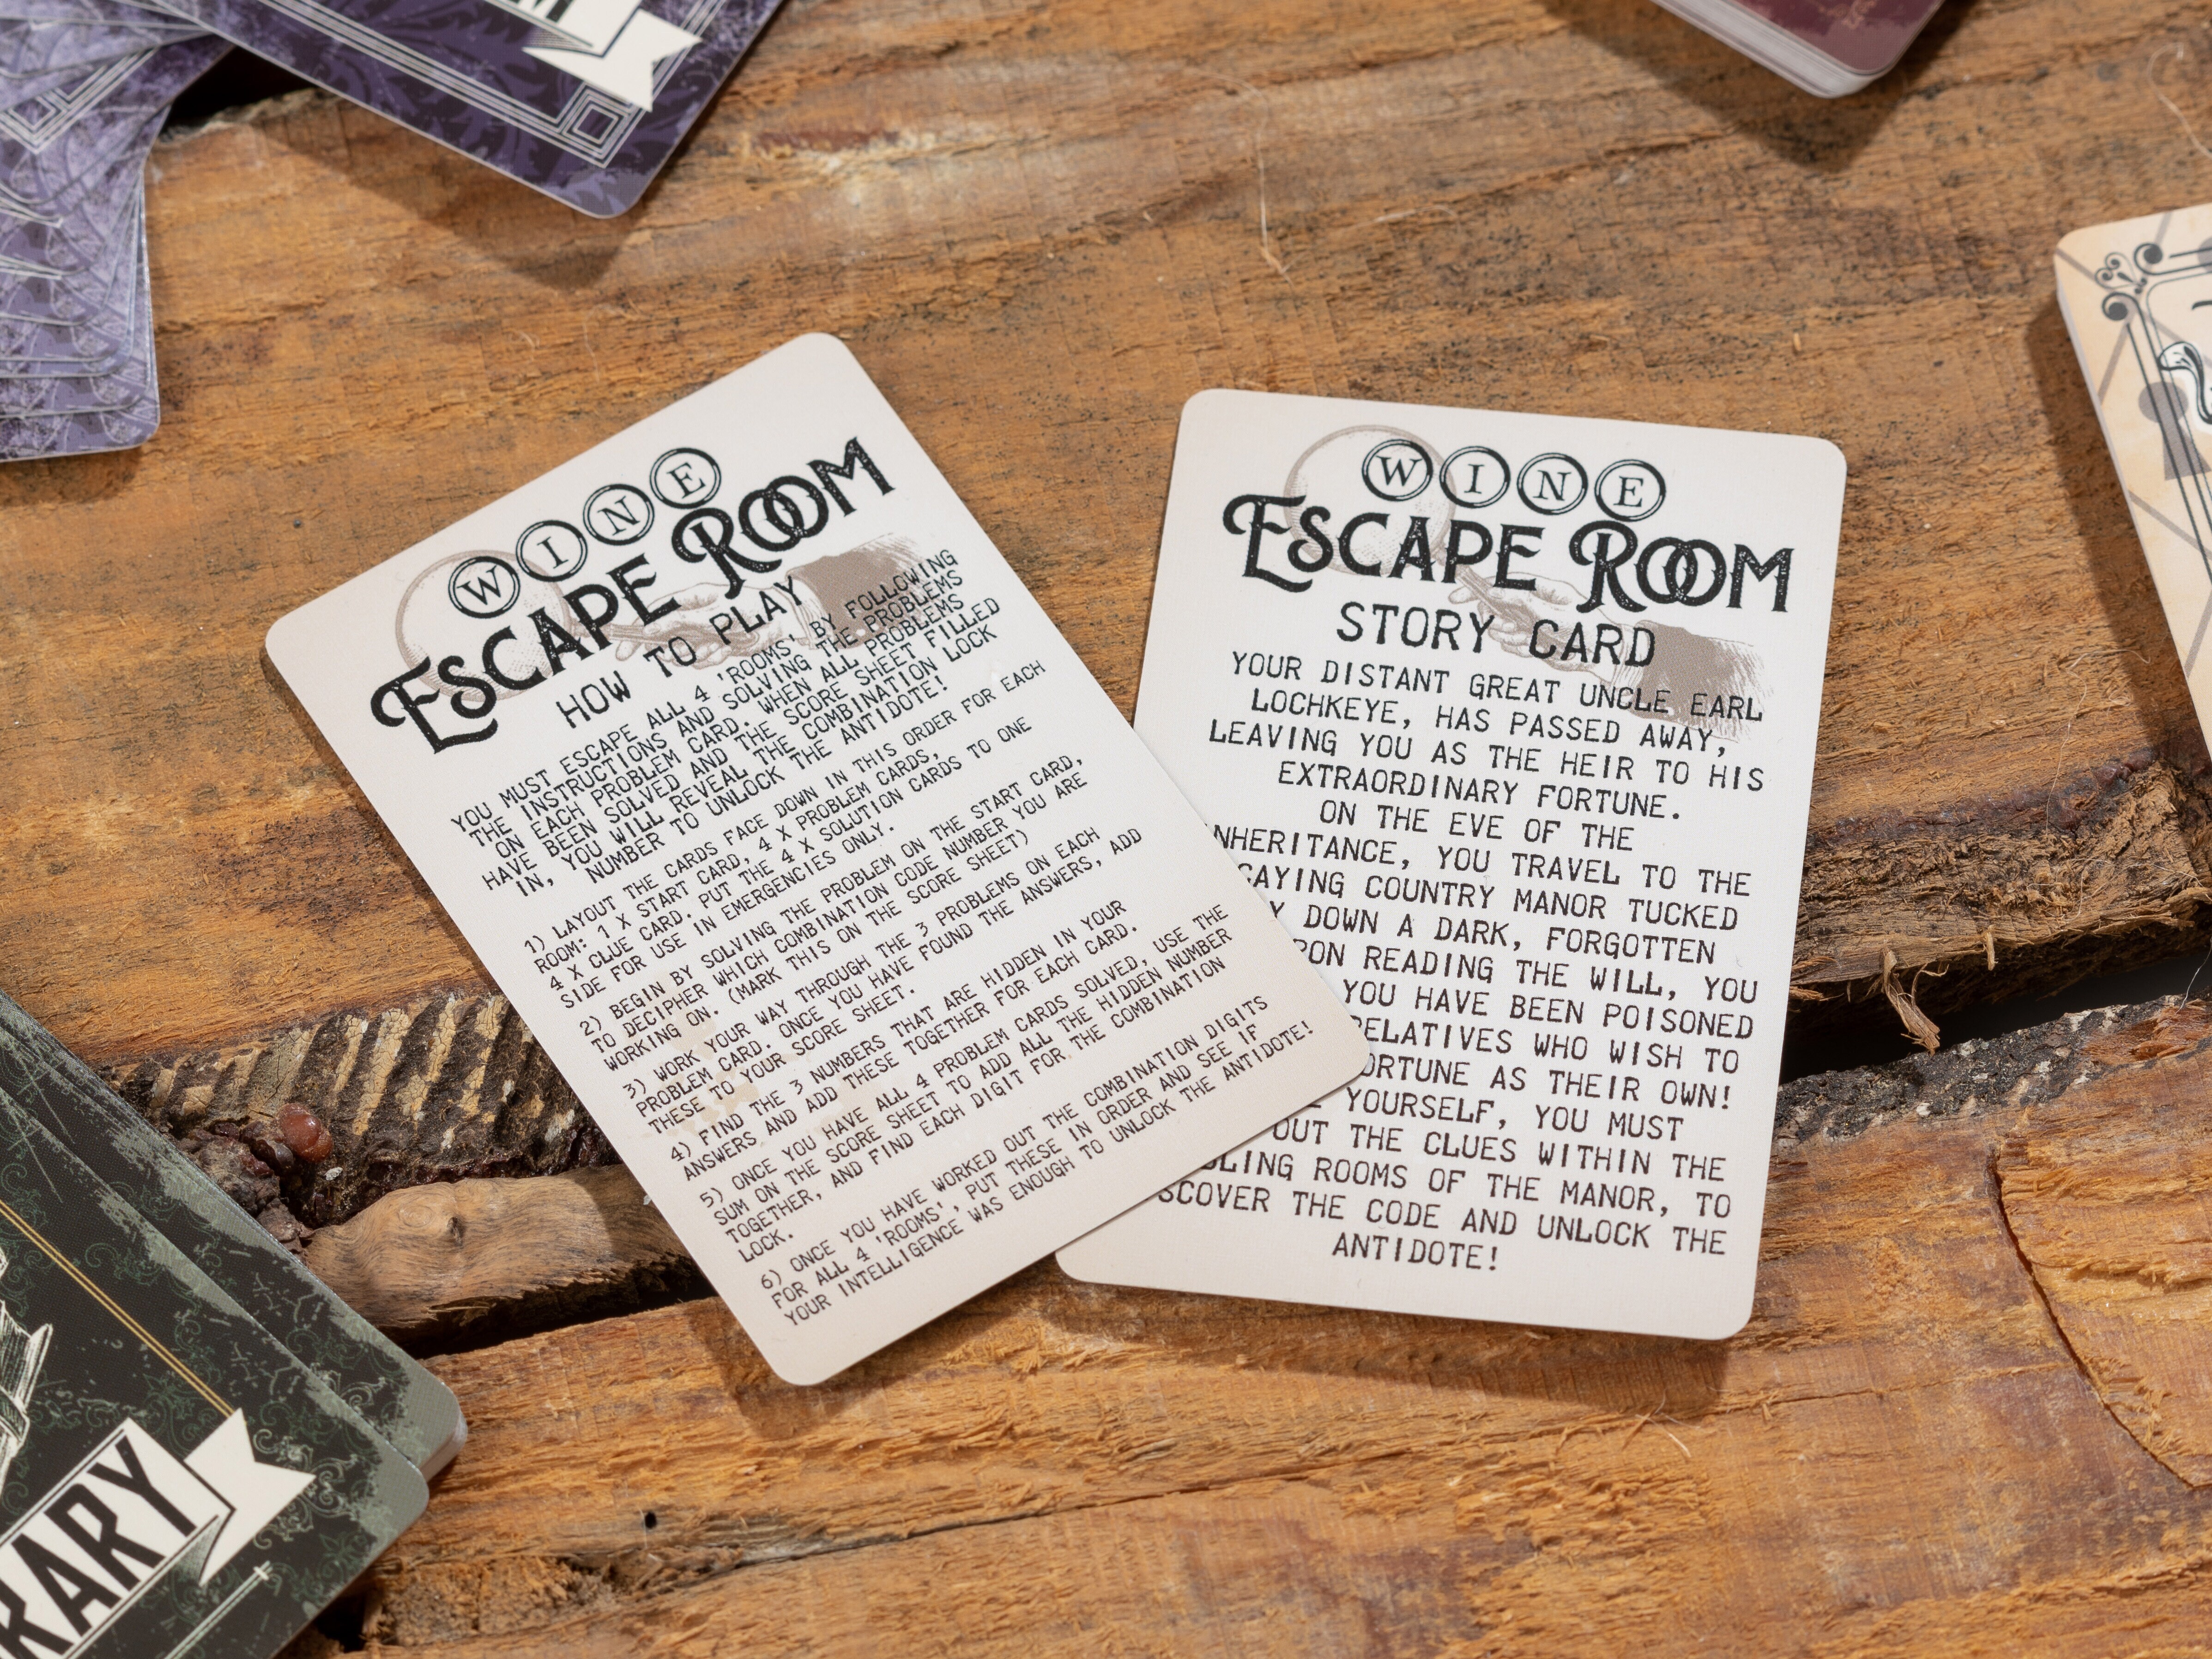 WINE
ESCAPE ROOM
HOW TO PLAY
YOU MUST ESCAPE ALL 4 'ROOMS' BY FOLLOWING
THE INSTRUCTIONS AND SOLVING THE PROBLEMS
ON EACH PROBLEM CARD. WHEN ALL PROBLEMS
HAVE BEEN SOLVED AND THE SCORE SHEET FILLED
IN, YOU WILL REVEAL THE COMBINATION LOCK
NUMBER TO UNLOCK THE ANTIDOTE!
1) LAYOUT THE CARDS FACE DOWN IN THIS ORDER FOR EACH
ROOM: 1 X START CARD, 4 X PROBLEM CARDS,
4 X CLUE CARD. PUT THE 4 X SOLUTION CARDS TO ONE
SIDE FOR USE IN EMERGENCIES ONLY.
2) BEGIN BY SOLVING THE PROBLEM ON THE START CARD,
TO DECIPHER WHICH COMBINATION CODE NUMBER YOU ARE
WORKING ON. (MARK THIS ON THE SCORE SHEET)
3) WORK YOUR WAY THROUGH THE 3 PROBLEMS ON EACH
PROBLEM CARD. ONCE YOU HAVE FOUND THE ANSWERS, ADD
THESE TO YOUR SCORE SHEET.
4) FIND THE 3 NUMBERS THAT ARE HIDDEN IN YOUR
ANSWERS AND ADD THESE TOGETHER FOR EACH CARD.
5) ONCE YOU HAVE ALL 4 PROBLEM CARDS SOLVED, USE THE
SUM ON THE SCORE SHEET TO ADD ALL THE HIDDEN NUMBER
TOGETHER, AND FIND EACH DIGIT FOR THE COMBINATION
LOCK.
6) ONCE YOU HAVE WORKED OUT THE COMBINATION DIGITS
FOR ALL 4 'ROOMS', PUT THESE IN ORDER AND SEE IF
YOUR INTELLIGENCE WAS ENOUGH TO UNLOCK THE ANTIDOTE!
WINE
ESCAPE ROOM
STORY CARD
YOUR DISTANT GREAT UNCLE EARL
LOCHKEYE, HAS PASSED AWAY,
LEAVING YOU AS THE HEIR TO HIS
EXTRAORDINARY FORTUNE.
ON THE EVE OF THE
NHERITANCE, YOU TRAVEL TO THE
CAYING COUNTRY MANOR TUCKED
Y DOWN A DARK, FORGOTTEN
PON READING THE WILL, YOU
YOU HAVE BEEN POISONED
RELATIVES WHO WISH TO
ORTUNE AS THEIR OWN!
YOURSELF, YOU MUST
OUT THE CLUES WITHIN THE
LING ROOMS OF THE MANOR, TO
SCOVER THE CODE AND UNLOCK THE
ANTIDOTE!
RARY